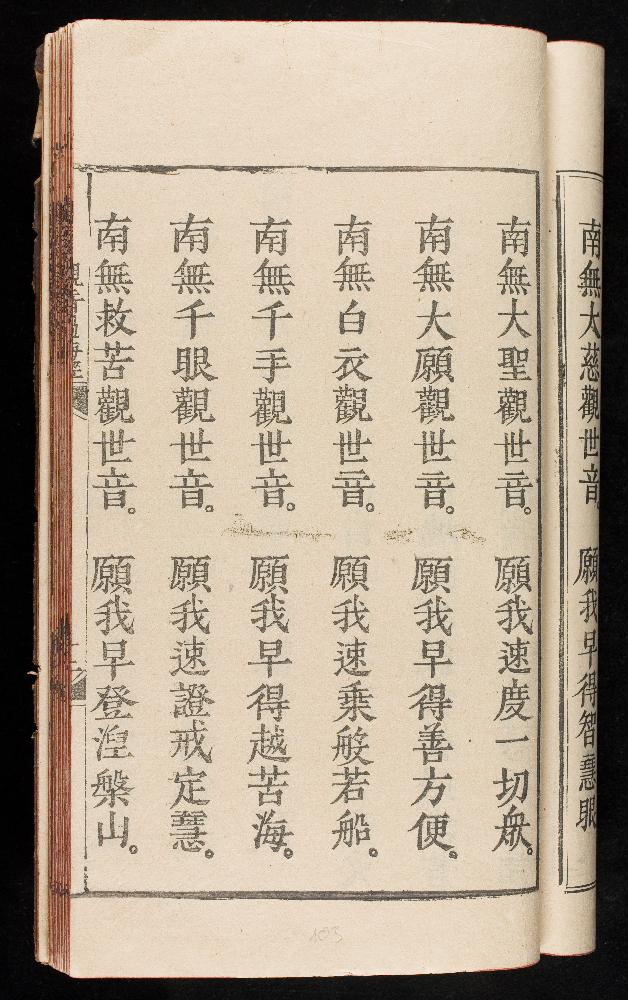 南無大慈觀世音。 願我早得智慧眼
南無大聖觀世音。 願我速度一切衆。
南無大願觀世音。 願我早得善方便。
南無白衣觀世音。 願我速乘般若船。
南無千手觀世音。 願我早得越苦海。
南無千眼觀世音。 願我速證戒定慧。
南無救苦觀世音。 願我早登涅槃山。
103